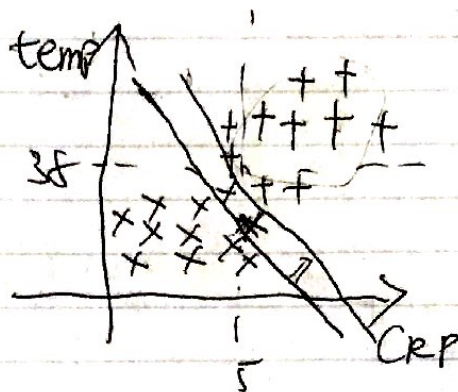 temp
38
CRP
5